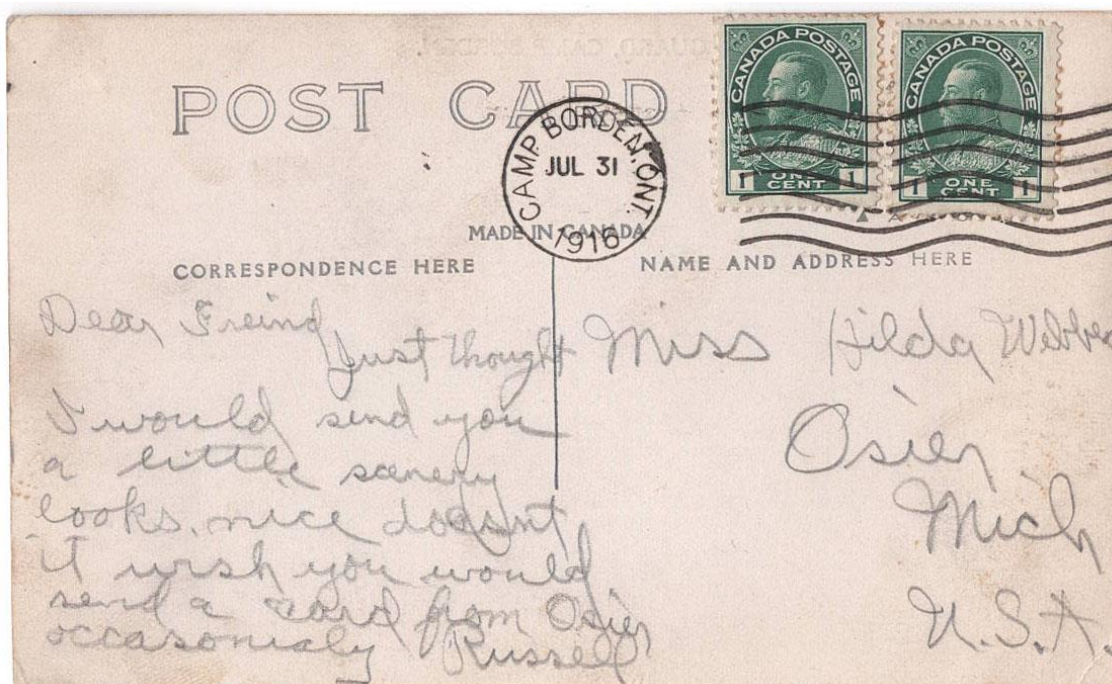 POST CARD
CAMP BORDEN, ONT.
JUL 31
1916
CANADA POSTAGE
1 ONE CENT 1
CANADA POSTAGE
1 ONE CENT 1
MADE IN CANADA
CORRESPONDENCE HERE
NAME AND ADDRESS HERE
Dear Freind
Just thought
I would send you
a little scenery
looks nice doesnt
it wish you would
send a card from Osier
occasonialy Russell
Miss Hilda Webber
Osier
Mich
U.S.A.